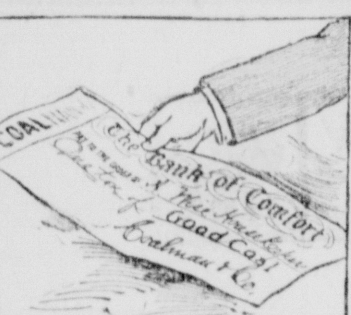 COAL
The Bank of Comfort
PAY TO THE ORDER OF The Householder
One Ton of Good Coal
Coalman & Co.